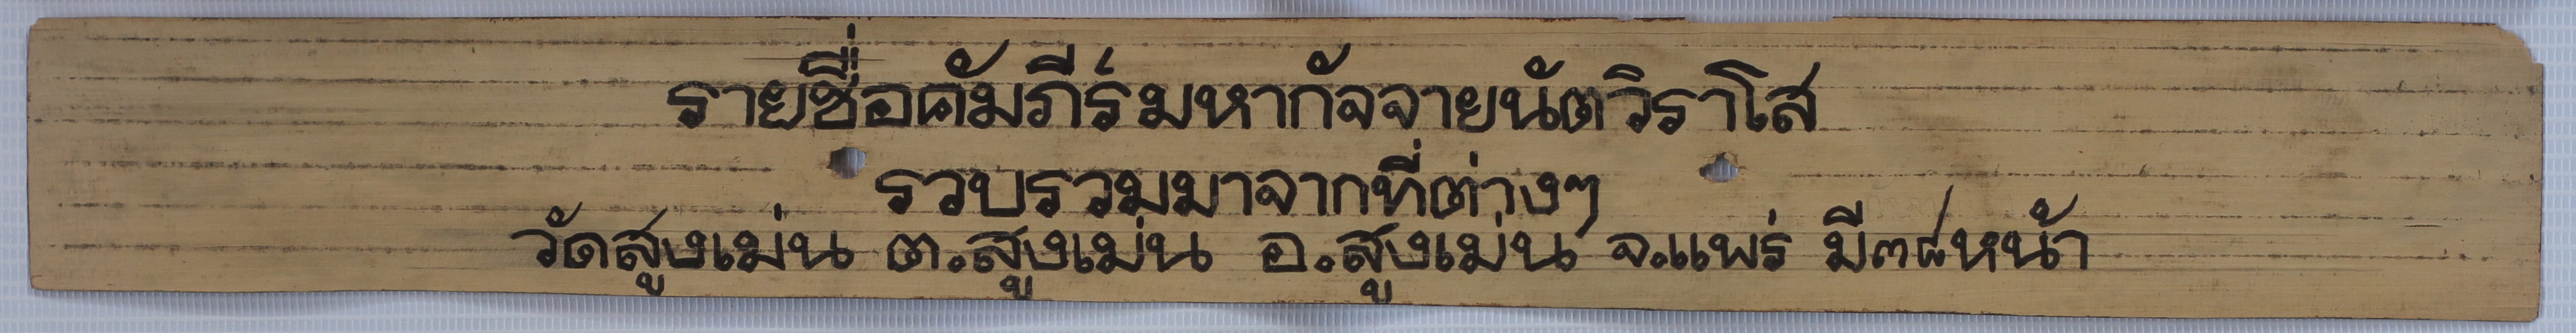 รายชื่อคัมภีร์มหากัจจายนัตวิราโส
รวบรวมมาจากที่ต่างๆ
วัดสูงเม่น ต.สูงเม่น อ.สูงเม่น จ.แพร่ มี๓๘หน้า